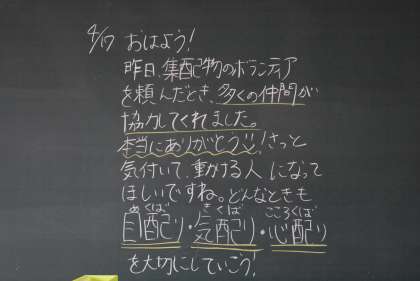 4/17 おはよう!
昨日、集配物のボランティア
を頼んだとき、多くの仲間が
協力してくれました。
本当にありがとう!さっと
気付いて、動ける人になって
ほしいですね。どんなときも
目配り・気配り・心配り
めくば きくば こころくば
を大切にしていこう!